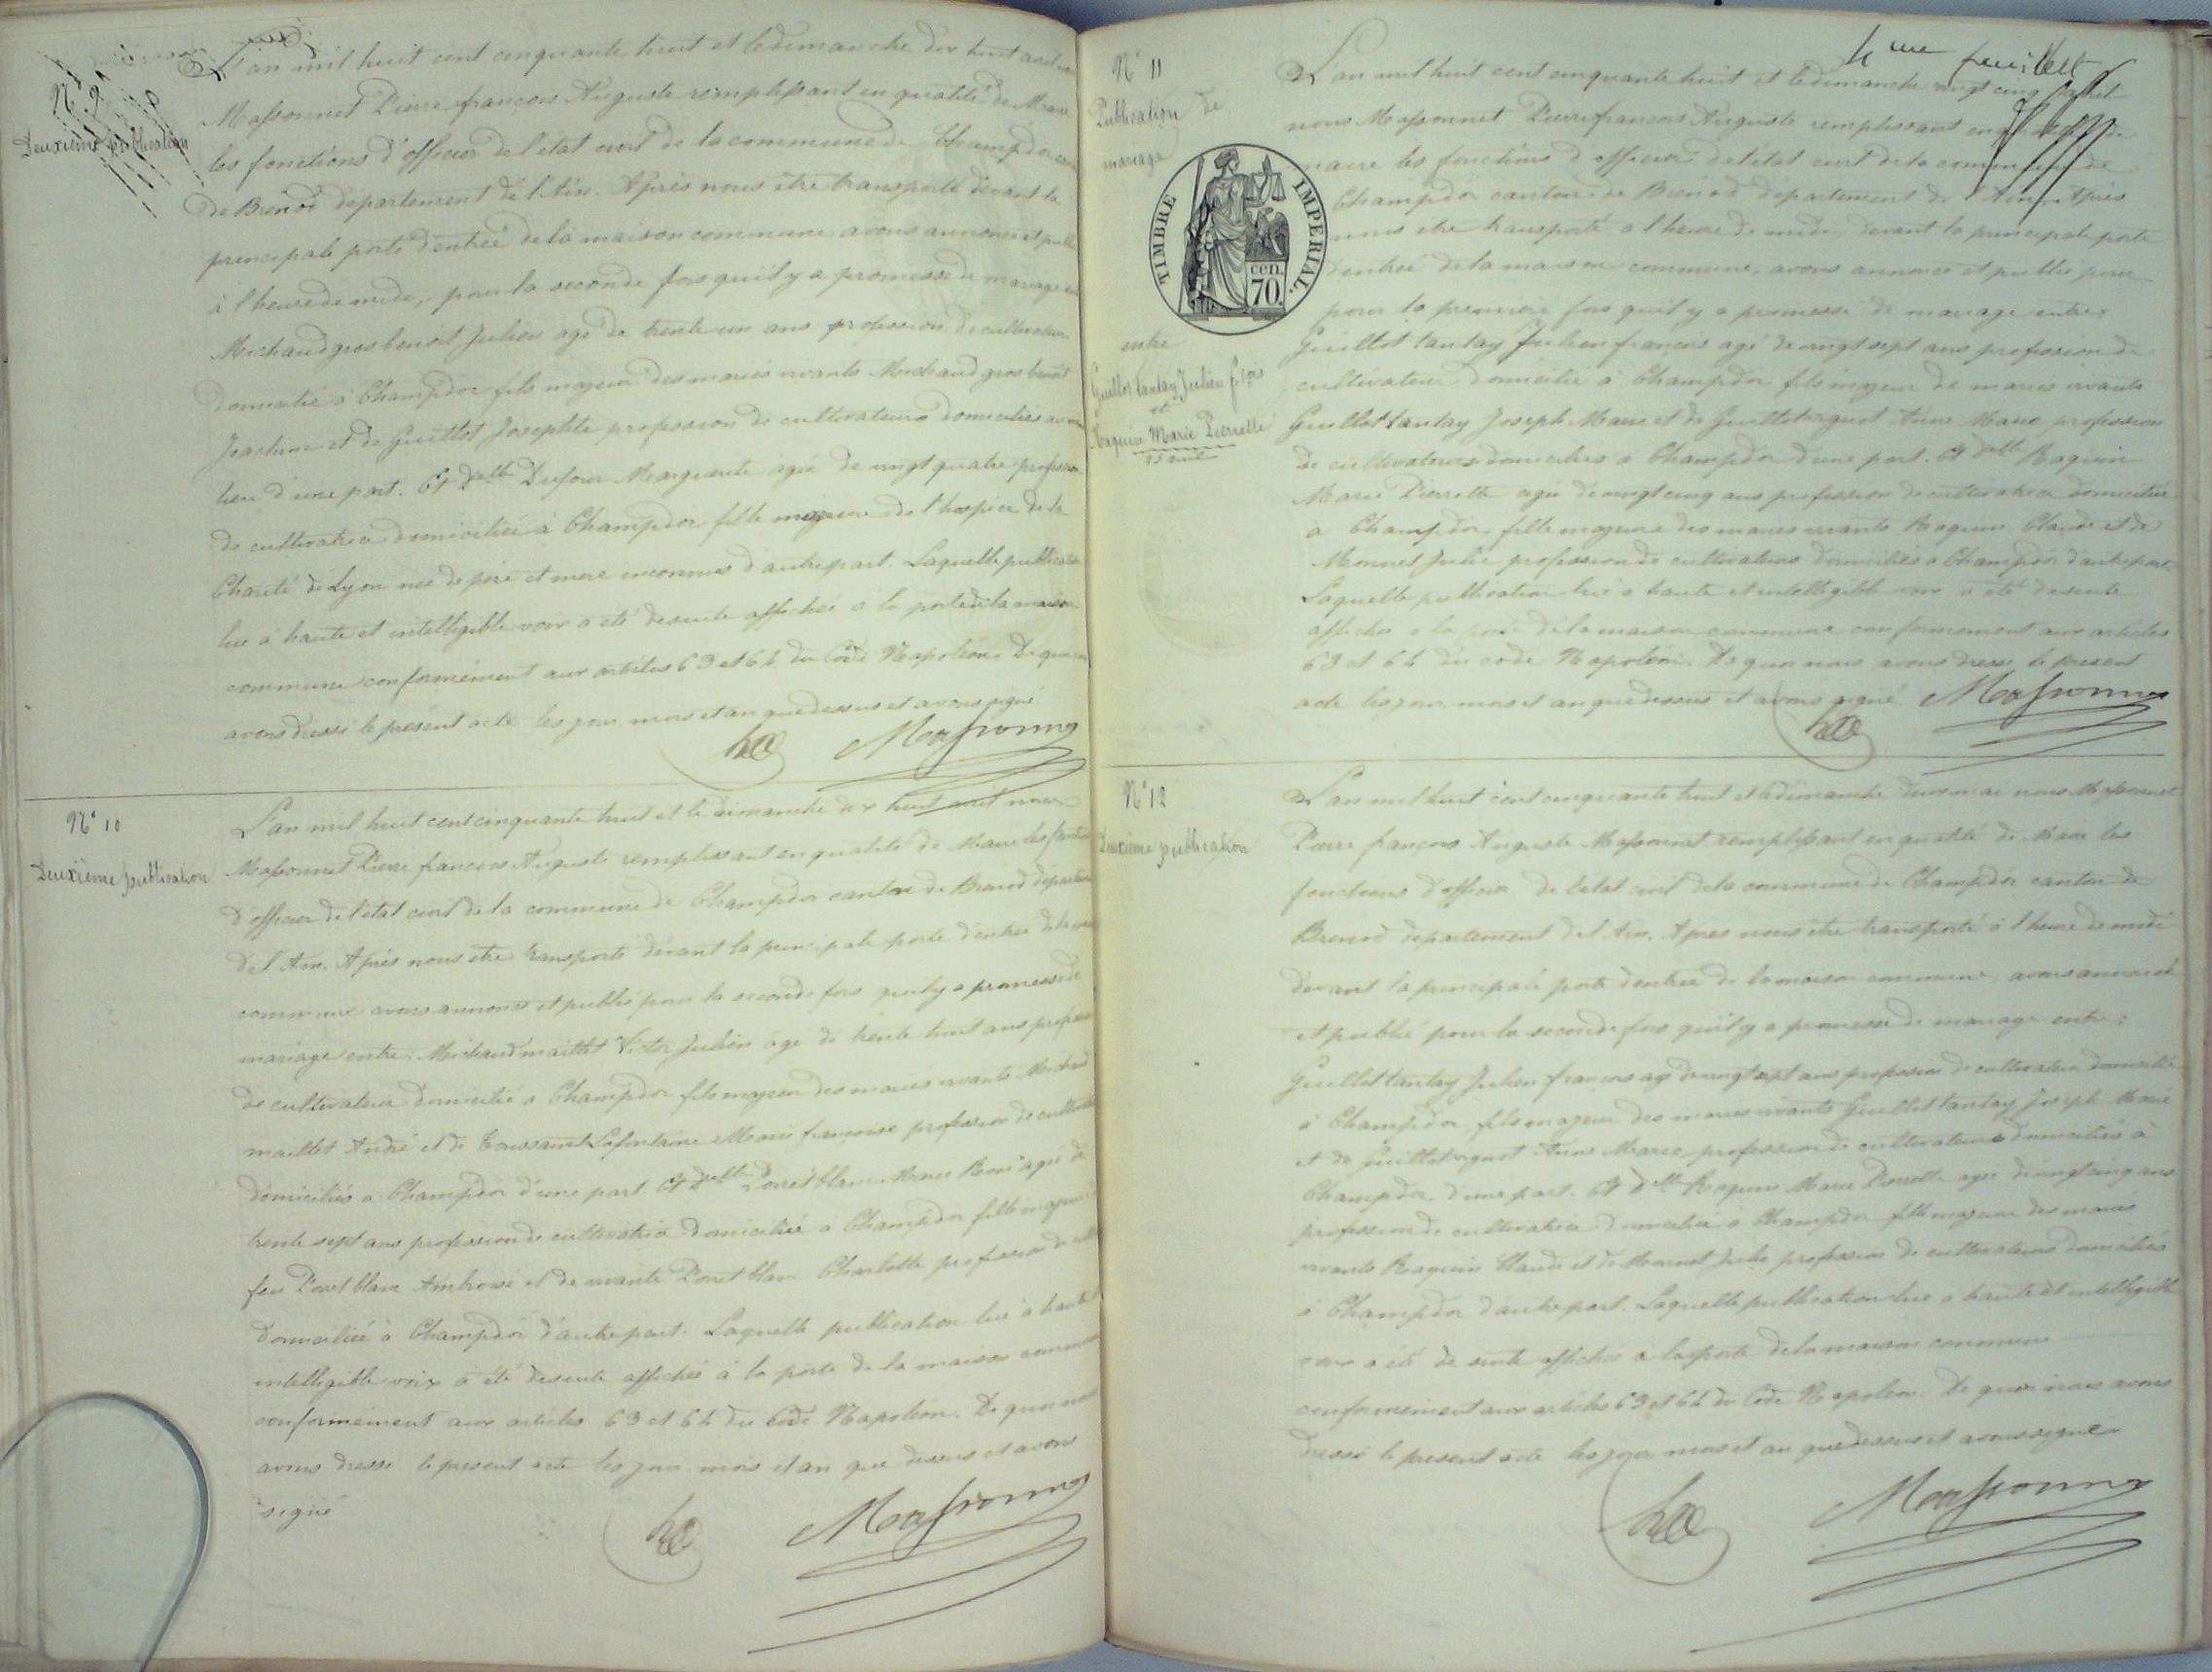 N° 9
Deuxième publication
L'an mil huit cent cinquante huit et le dimanche dix huit avril
Massonnet Pierre françois Auguste remplissant en qualité de Maire
les fonctions d'officier de l'état civil de la commune de Champdor
de Brenod département de l'Ain. Après nous être transporté devant la
principale porte d'entrée de la maison commune avons annoncé et publié
à l'heure de midi, pour la seconde fois qu'il y a promesse de mariage
Michaud gros benoit Julien agé de trente un ans profession de cultivateur
domicilié à Champdor fils majeur des mariés vivants Michaud gros benoit
Joachim et de Guillot Josephte profession de cultivateurs domiciliés
lieu d'une part. Et Delle Dufour Marguerite agée de vingt quatre profession
de cultivatrice domiciliée à Champdor fille majeure de l'hospice de la
Charité de Lyon née de père et mere inconnus d'autre part. Laquelle publication
lue à haute et intelligible voix a été de suite affichée à la porte de la maison
commune conformément aux articles 63 et 64 du Code Napoléon. De quoi
avons dressé le présent acte les jour mois et an que dessus et avons signé
Massonnet
N° 10
Deuxième publication
L'an mil huit cent cinquante huit et le dimanche dix huit avril nous
Massonnet Pierre françois Auguste remplissant en qualité de Maire les
d'officier de l'état civil de la commune de Champdor canton de Brenod
de l'Ain. Après nous être transporté devant la principale porte d'entrée de la
commune avons annoncé et publié pour la seconde fois qu'il y a promesse de
mariage entre: Michaud maillet Victor Julien agé de trente huit ans profession
de cultivateur domicilié à Champdor fils majeur des mariés vivants Michaud
maillet André et de Toussaint Lafontaine Marie françoise profession de
domiciliés a Champdor d'une part. Et Delle Poncet blanc Marie agée de
trente sept ans profession de cultivatrice domiciliée à Champdor fille majeure
feu Poncet blanc Ambroise et de vivante Poncet blanc Charlotte profession de
domiciliée à Champdor d'autre part. Laquelle publication lue à haute
intelligible voix a été de suite affichée à la porte de la maison commune
conformément aux articles 63 et 64 du Code Napoléon. De quoi nous
avons dressé le présent acte les jour mois et an que dessus et avons
signé
Massonnet
4me feuillet
N° 11
Publication de
mariage
TIMBRE IMPERIAL.
cen.
70.
entre
Guillot tantay Julien fçois
et
Raquin Marie Pierrette
25 avril
L'an mil huit cent cinquante huit et le dimanche vingt cinq avril
nous Massonnet Pierre françois Auguste remplissant en qualité de
maire les fonctions d'officier de l'état civil de la commune de
Champdor canton de Brenod département de l'Ain. Après
nous être transporté à l'heure de midi, devant la principale porte
d'entrée de la maison commune, avons annoncé et publié pour
pour la première fois qu'il y a promesse de mariage entre:
Guillot tantay Julien françois agé de vingt sept ans profession de
cultivateur domicilié à Champdor fils majeur de mariés vivants
Guillot tantay Joseph Marie et de Guillot Anne Marie profession
de cultivateurs domiciliés à Champdor d'une part. Et Delle Raquin
Marie Pierrette agée de vingt cinq ans profession de cultivatrice domiciliée
a Champdor, fille majeure des mariés vivants Raquin Claude et de
Monnet Julie profession de cultivateurs domiciliés à Champdor d'autre part.
Laquelle publication lue a haute et intelligible voix a été de suite
affichée a la porte de la maison commune conformement aux articles
63 et 64 du code Napoléon. De quoi nous avons dressé le present
acte les jour, mois et an que dessus et avons signé
Massonnet
N° 12
Deuxième publication
L'an mil huit cent cinquante huit et le dimanche deux mai nous Massonnet
Pierre françois Auguste Massonnet remplissant en qualité de Maire les
fonctions d'officier de l'état civil de la commune de Champdor canton de
Brenod département de l'Ain. Après nous être transporté à l'heure de midi
devant la principale porte d'entrée de la maison commune, avons annoncé
et publié pour la seconde fois qu'il y a promesse de mariage entre:
Guillot tantay Julien françois agé de vingt sept ans profession de cultivateur domicilié
à Champdor, fils majeur des mariés vivants Guillot tantay Joseph Marie
et de Guillot Anne Marie, profession de cultivateurs domiciliés à
Champdor d'une part. Et Delle Raquin Marie Pierrette agée de vingt cinq ans
profession de cultivatrice domiciliée à Champdor fille majeure des mariés
vivants Raquin Claude et de Monnet Julie profession de cultivateurs domiciliés
à Champdor d'autre part. Laquelle publication lue a haute et intelligible
voix a été de suite affichée à la porte de la maison commune
conformement aux articles 63 et 64 du Code Napoléon. De quoi nous avons
dressé le present acte les jour mois et an que dessus et avons signé
Massonnet